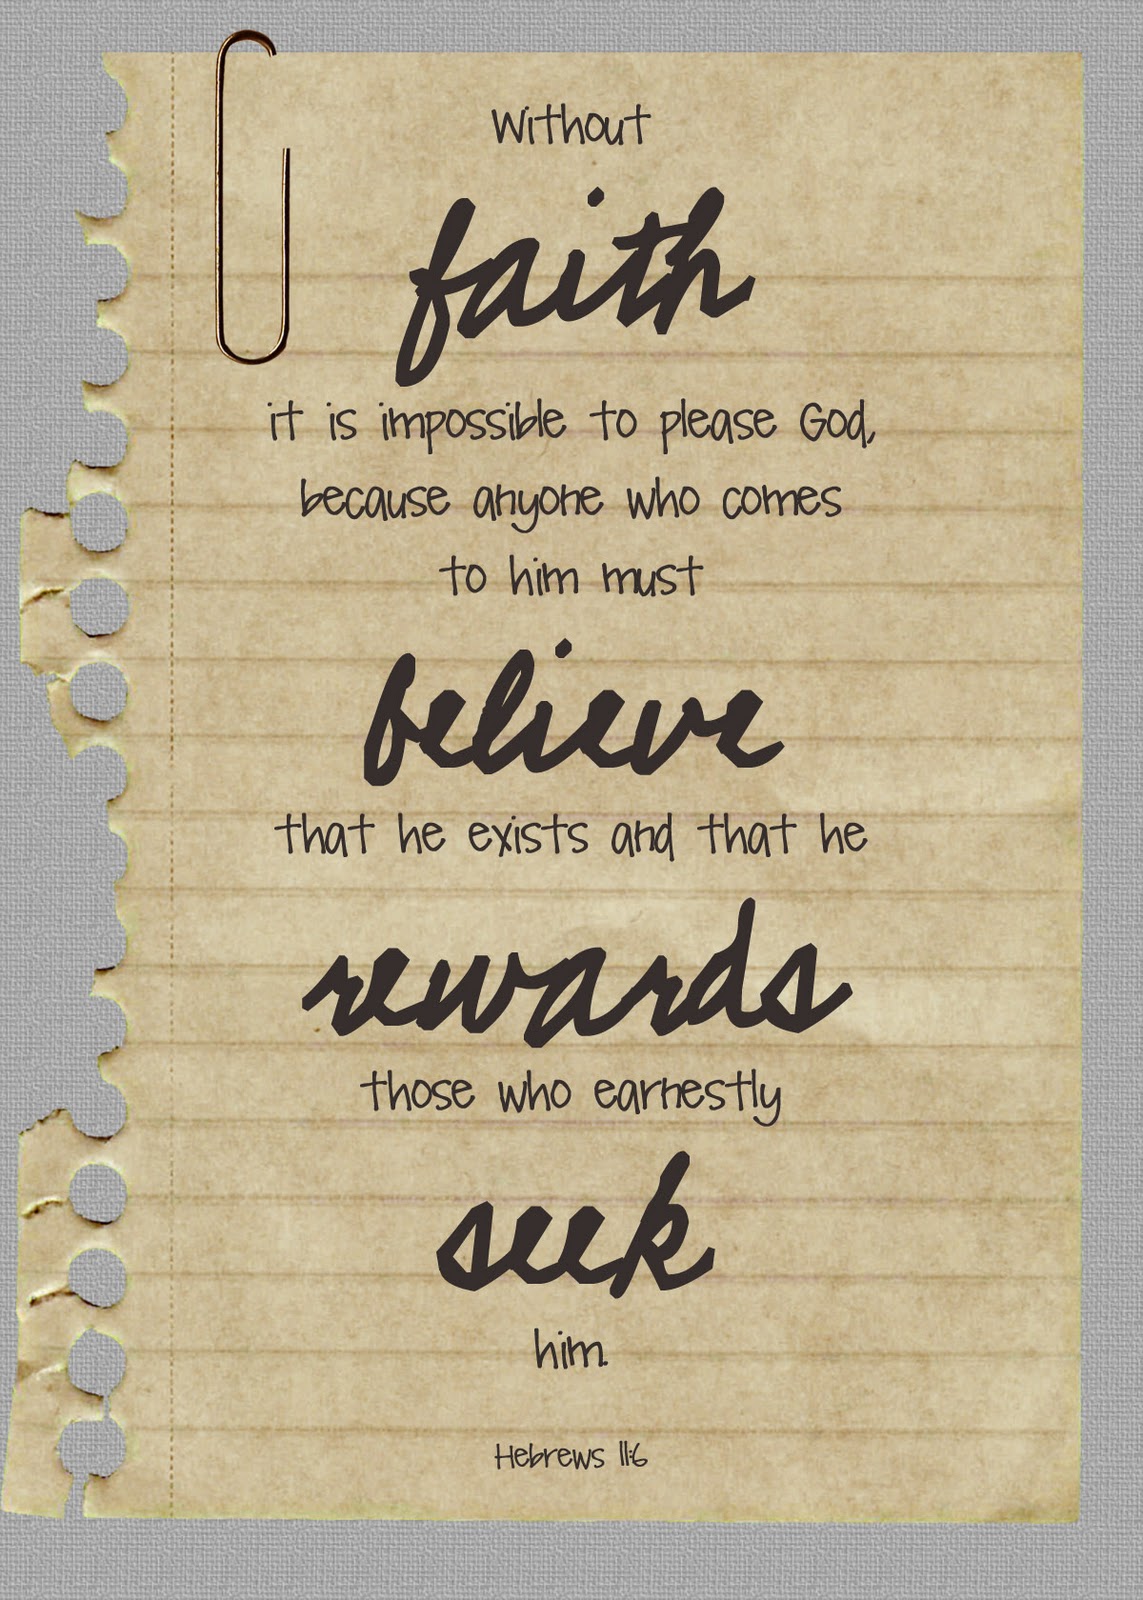 Without
faith
it is impossible to please God,
because anyone who comes
to him must
believe
that he exists and that he
rewards
those who earnestly
seek
him.
Hebrews 11:6